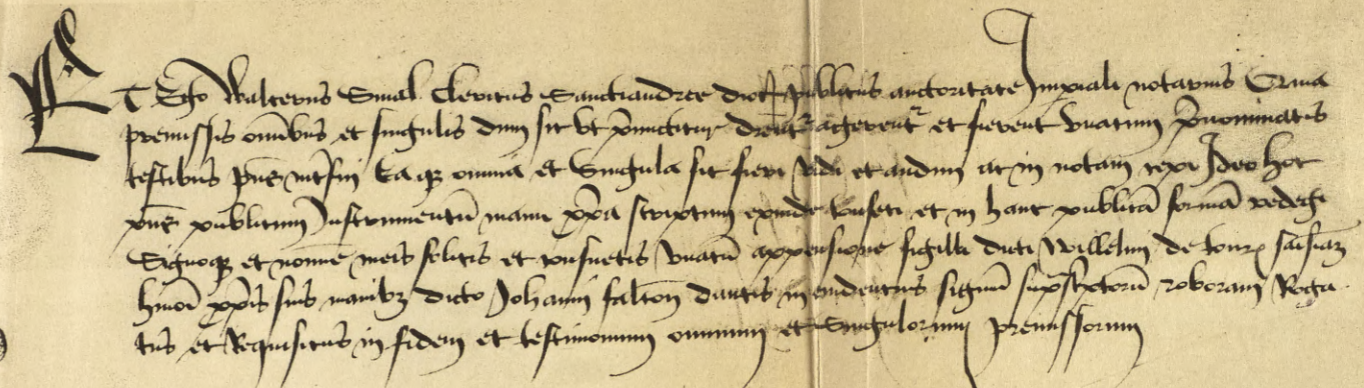 ET Ego Walterus Smal Clericus Sanctiandree dioc publicus auctoritate Imperiali notarius Quia
premissis omnibus et singulis dum sic ut premittitur dicerentur agerentur et fierent unacum prenominatis
testibus pns interfui Ea que omnia et Singula sic fieri vidi et audivi ac in notam cepi Ideo hoc
pns publicum Instrumentum manu propria scriptum exinde confeci et in hanc publicam formam redegi
Signoque et nomine meis solitis et consuetis unacum appensione sigilli dicti Willelmi de saisinam
hmoi propriis suis manibus dicto Johanni dantis in evidentius signum suprascriptorum roboravi Roga
tus et Requisitus in fidem et testimonium omnium et Singulorum premissorum